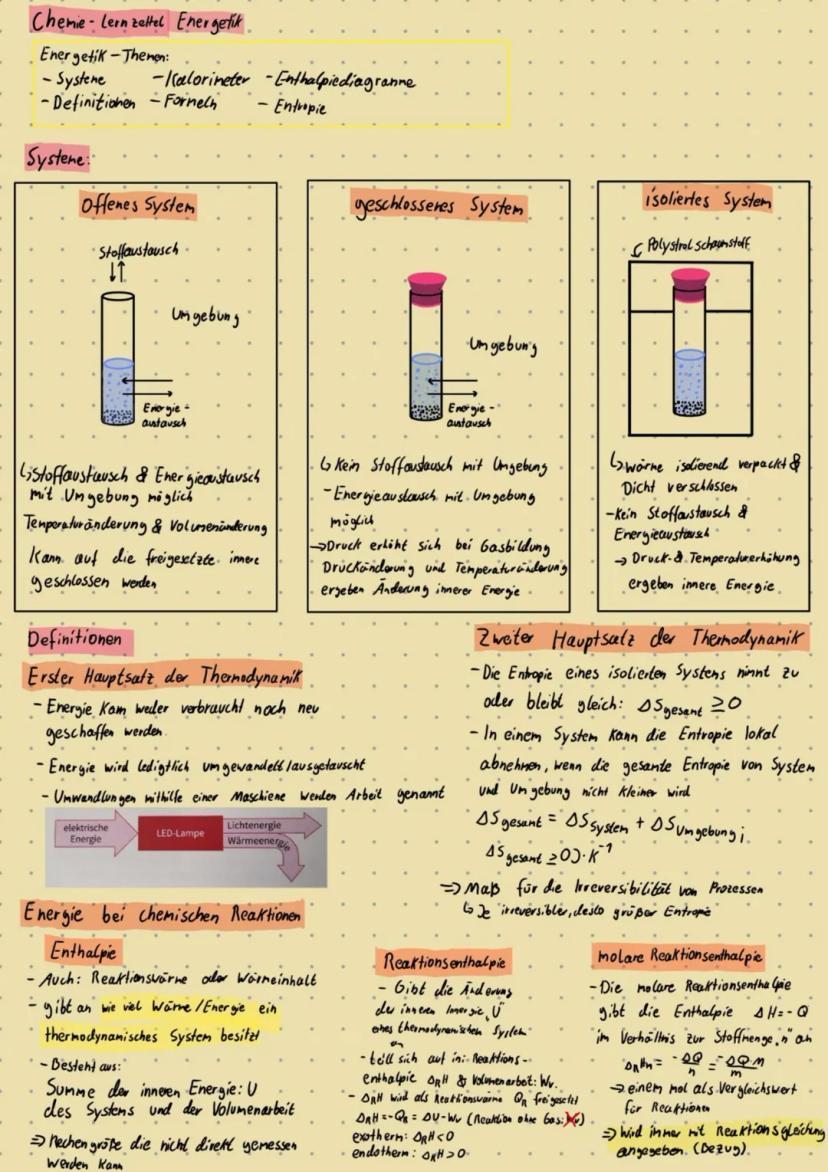 Chemie - Lernzettel Energetik
Energetik - Themen:
- Systeme - Kalorimeter - Enthalpiediagramme
- Definitionen - Formeln - Entropie
Systeme:
Offenes System
Stoffaustausch
Umgebung
Energie-
austausch
↳ Stoffaustausch & Energieaustausch
mit Umgebung möglich
Temperaturänderung & Volumenänderung
Kann auf die freigesetzte innere
geschlossen werden
geschlossenes System
Umgebung
Energie-
austausch
↳ Kein Stoffaustausch mit Umgebung
- Energieaustausch mit Umgebung
möglich
→ Druck erhöht sich bei Gasbildung
Druckänderung und Temperaturänderung
ergeben Änderung innerer Energie
isoliertes System
Polystrol schaumstoff
↳ Wärme isolierend verpackt &
Dicht verschlossen
- Kein Stoffaustausch &
Energieaustausch
→ Druck- & Temperaturerhöhung
ergeben innere Energie
Definitionen
Erster Hauptsatz der Thermodynamik
- Energie kann weder verbraucht noch neu
geschaffen werden.
- Energie wird ledigtlich umgewandelt/ausgetauscht
- Umwandlungen mithilfe einer Maschiene werden Arbeit genannt
elektrische
Energie
LED-Lampe
Lichtenergie
Wärmeenergie
Zweiter Hauptsatz der Thermodynamik
- Die Entropie eines isolierten Systems nimmt zu
oder bleibt gleich: ΔS gesamt ≥ 0
- In einem System kann die Entropie lokal
abnehmen, wenn die gesamte Entropie von System
und Umgebung nicht kleiner wird
ΔS gesamt = ΔS System + ΔS Umgebung ;
ΔS gesamt ≥ 0 J·K⁻¹
⇒ Maß für die Irreversibilität von Prozessen
↳ Je irreversibler, desto größer Entropie
Energie bei chemischen Reaktionen
Enthalpie
- Auch: Reaktionswärme oder Wärmeinhalt
- gibt an wie viel Wärme/Energie ein
thermodynamisches System besitzt
- Besteht aus:
Summe der inneren Energie: U
des Systems und der Volumenarbeit
⇒ Rechengröße die nicht direkt gemessen
werden kann
Reaktionsenthalpie
- Gibt die Änderung
der inneren Energie „U"
eines thermodynamischen System
an
- teilt sich auf in: Reaktions-
enthalpie ΔRH & Volumenarbeit: Wv.
- ΔRH wird als Reaktionswärme QR freigesetzt
ΔRH = -QR = ΔU - Wv (Reaktion ohne Gas:
exotherm: ΔRH < 0
endotherm: ΔRH > 0
molare Reaktionsenthalpie
- Die molare Reaktionsenthalpie
gibt die Enthalpie ΔH = - Q
im Verhältnis zur Stoffmenge „n" an
ΔRHm = -ΔQ/n = -ΔQ·M/m
→ einem mol als Vergleichswert
für Reaktionen
⇒ Wird immer mit Reaktionsgleichung
angegeben. (Bezug).